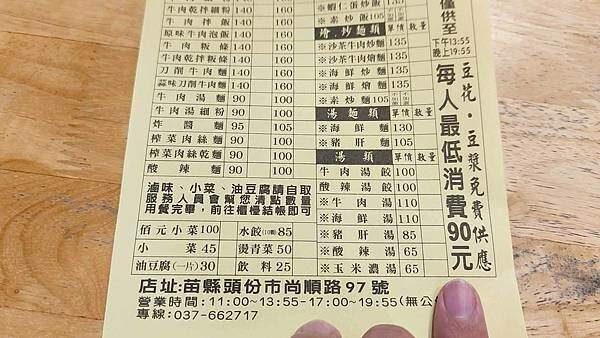 牛肉乾拌細粉 140 160
牛肉拌飯 140 160
原味牛肉泡飯 140 160
牛肉粄條 140 160
牛肉乾拌粄條 140 160
刀削牛肉麵 140 160
蒜味刀削牛肉麵 140 160
牛肉湯麵 90 100
牛肉湯細粉 90 100
炸醬麵 95 105
榨菜肉絲麵 90 100
榨菜肉絲乾麵 90 100
酸辣麵 90 100
滷味、小菜、油豆腐請自取
服務人員會幫您清點數量
用餐完畢,前往櫃檯結帳即可
佰元小菜100 水餃(10顆)85
小菜 45 燙青菜 50
油豆腐(一片)30 飲料 25
※蝦仁蛋炒飯
※素炒飯105
燴.炒麵類 單價 數量
※沙茶牛肉炒麵 135
※沙茶牛肉燴麵 135
※海鮮炒麵 135
※海鮮燴麵 135
※素炒麵105
湯麵類 單價 數量
※海鮮麵 130
※豬肝麵 105
湯類 單價 數量
牛肉湯餃 100
酸辣湯餃 100
※牛肉湯 110
※海鮮湯 110
※豬肝湯 85
※酸辣湯 65
※玉米濃湯 65
僅供至
下午13:55
晚上19:55
豆花.豆漿免費供應
每人最低消費90元
店址:苗縣頭份市尚順路97號
營業時間:11:00~13:55-17:00~19:55(無公
專線:037-662717